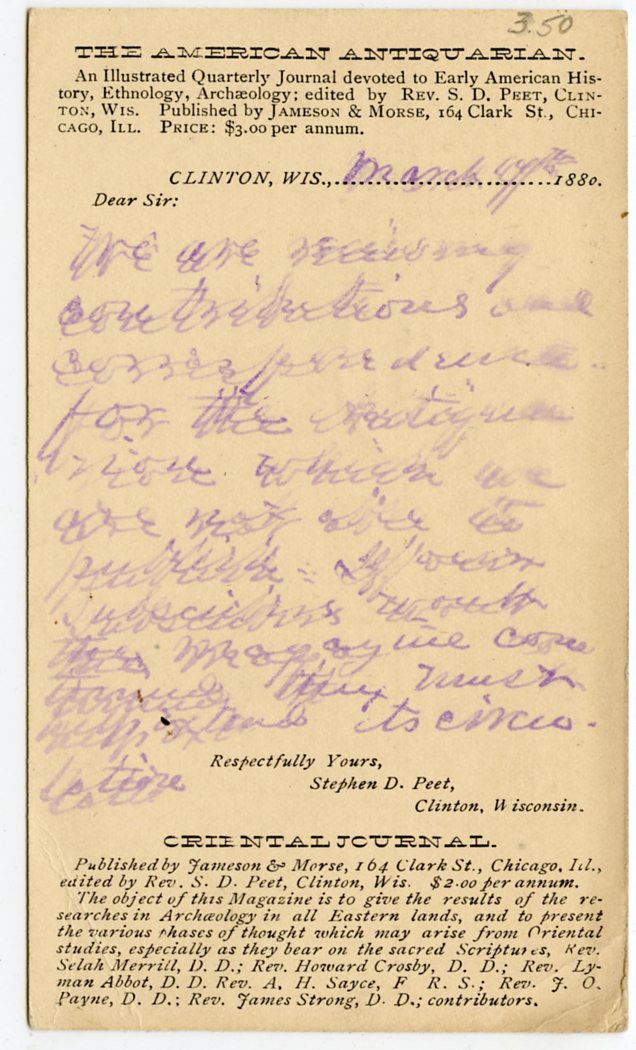 3.50
THE AMERICAN ANTIQUARIAN.
An Illustrated Quarterly Journal devoted to Early American His-
tory, Ethnology, Archæology; edited by REV. S. D. PEET, CLIN-
TON, WIS. Published by JAMESON & MORSE, 164 Clark St., CHI-
CAGO, ILL. PRICE: $3.00 per annum.
CLINTON, WIS., March 1880.
Dear Sir:
We are receiving
contributions and
correspondence
for the Antiqua
rian which we
are not able to
publish - If our
subscribers would
the Magazine con
tinued they must
help extend its circu-
lation
Respectfully Yours,
Stephen D. Peet,
Clinton, Wisconsin.
ORIENTAL JOURNAL.
Published by Jameson & Morse, 164 Clark St., Chicago, Ill.,
edited by Rev. S. D. Peet, Clinton, Wis. $2.00 per annum.
The object of this Magazine is to give the results of the re-
searches in Archæology in all Eastern lands, and to present
the various phases of thought which may arise from Oriental
studies, especially as they bear on the sacred Scriptures, Rev.
Selah Merrill, D. D.; Rev. Howard Crosby, D. D.; Rev. Ly-
man Abbot, D. D. Rev. A. H. Sayce, F R. S.; Rev. J. O.
Payne, D. D.; Rev. James Strong, D. D.; contributors.